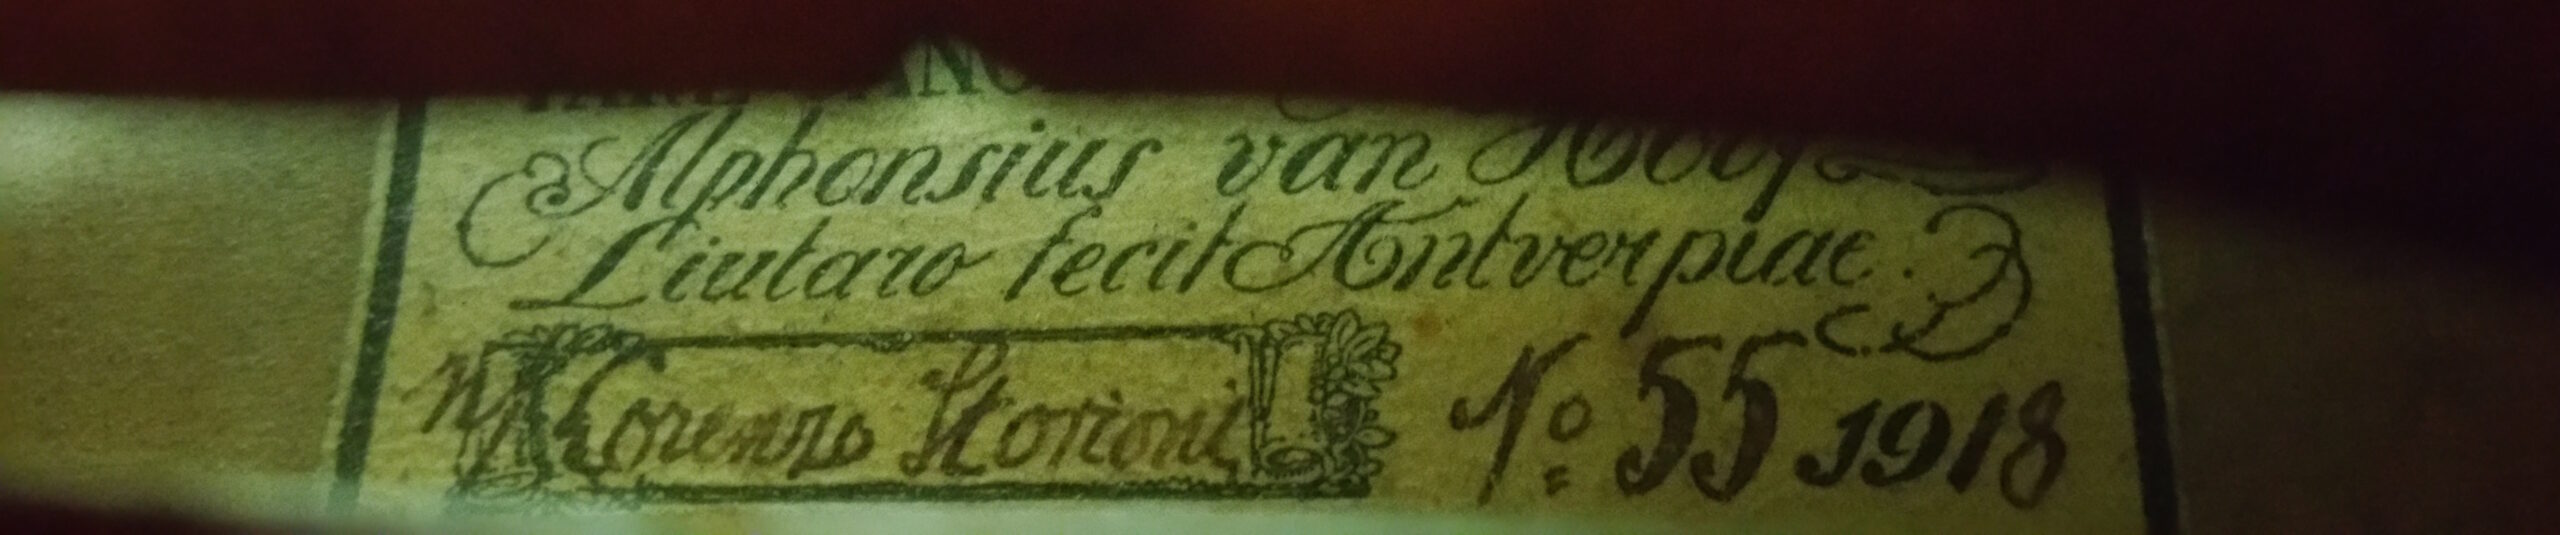 Alphonsius van Hoof
Liutaro fecit Antverpiae.
Lorenzo Storioni
No 55 1918